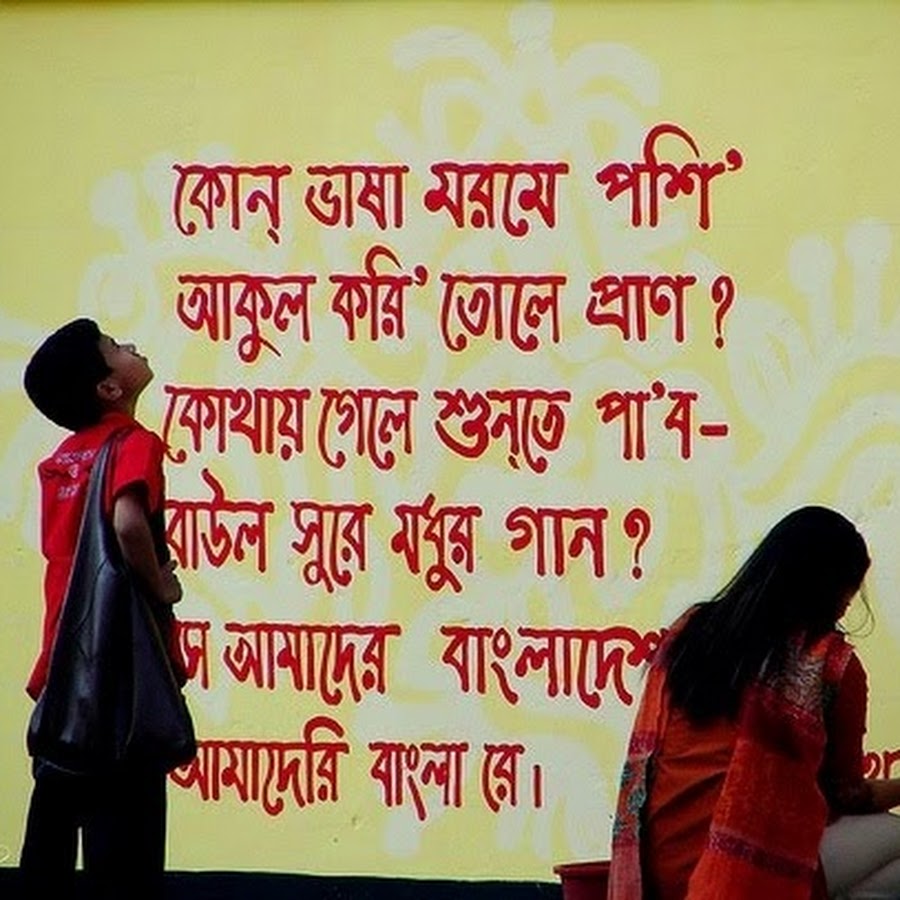 কোন্ ভাষা মরমে পশি’
আকুল করি’ তোলে প্রাণ ?
কোথায় গেলে শুন্‌তে পা’ব–
বাউল সুরে মধুর গান ?
সে আমাদের বাংলাদেশ
আমাদেরি বাংলা রে।